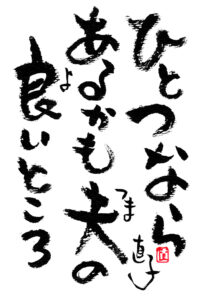 ひとつなら
あるかも夫の
つま
良いところ
よ
直子